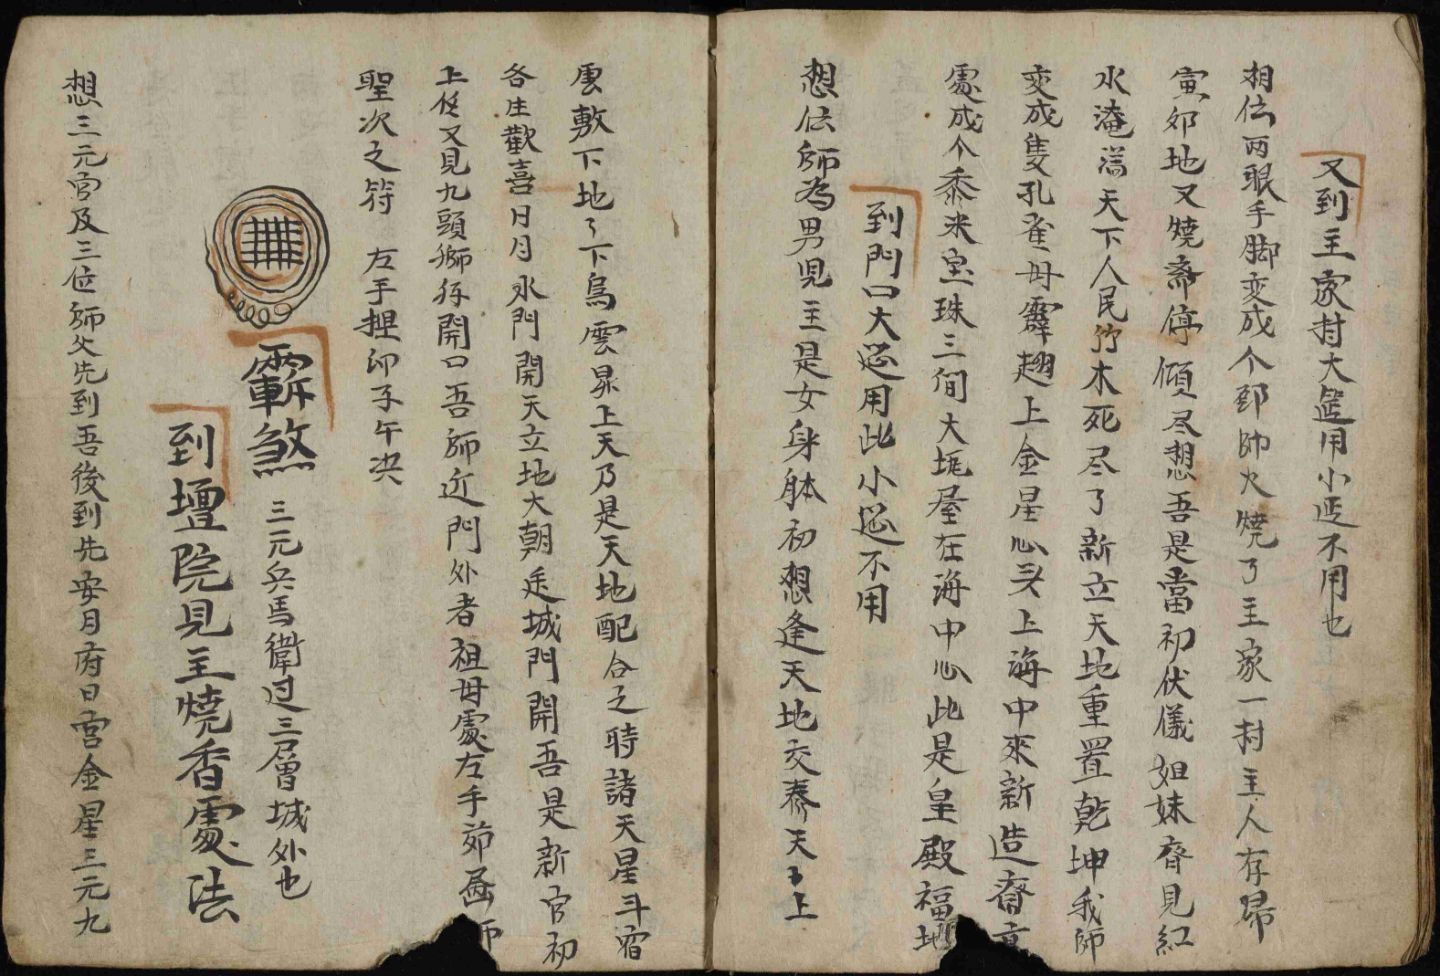 又到主家村大筵用小筵不用也
相伝両眼手脚变成个
火燒了主家一村主人存
寅卯地又燒斋停傾尽想吾是當初伏儀姐妹齊見紅
水淹満天下人民竹木死尽了新立天地重置乾坤我師
变成隻孔雀母霹趐上金星心头上海中來新造齋
處成个黍米宝珠三间大地屋在海中心此是皇殿福地
到門口大筵用此小筵不用
想伝師為男児主是女身躰初想逢天地交泰天了上
雲敷下地了下烏雲昇上天乃是天地配合之時諸天星斗宿
各生歡喜日月水門開天立地大朝廷城門開吾是新官初
上任又見九頭獅孫開口吾師近門外者祖母處左手茆
聖次之符 左手捏卯子午决
霹煞 三元兵馬衛过三層城外也
到壇院見主燒香處法
想三元官及三位師父先到吾後到先安月府日宫金星三元九